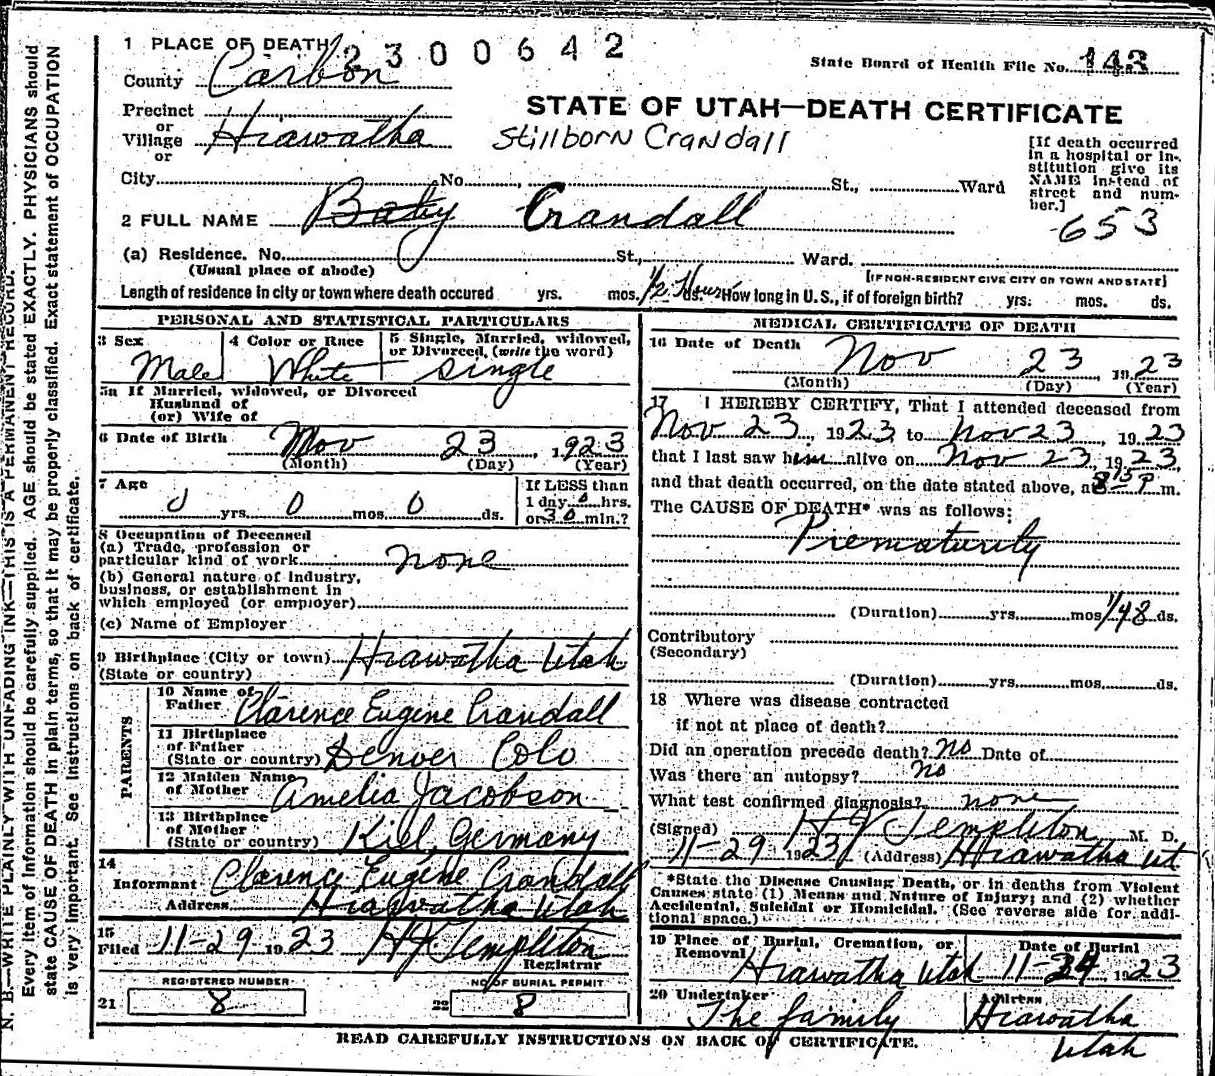 1 PLACE OF DEATH 2300642
State Board of Health File No. 143
County Carbon
STATE OF UTAH—DEATH CERTIFICATE
Precinct
or
Village Hiawatha
Stillborn Crandall
or
City No. St., Ward
[If death occurred in a hospital or in-
stitution give its NAME instead of street and num-
ber.]
653
2 FULL NAME Baby Crandall
(a) Residence. No. St., Ward.
(Usual place of abode)
[IF NON-RESIDENT GIVE CITY OR TOWN AND STATE]
Length of residence in city or town where death occured yrs. mos. 1/2 Hours ds. How long in U.S., if of foreign birth? yrs. mos. ds.
PERSONAL AND STATISTICAL PARTICULARS
3 Sex Male
4 Color or Race White
5 Single, Married, widowed,
or Divorced, (write the word) Single
5a If Married, widowed, or Divorced
Husband of
(or) Wife of
6 Date of Birth Nov 23, 1923
(Month) (Day) (Year)
7 Age 0 yrs. 0 mos. 0 ds.
If LESS than
1 day 0 hrs.
or 30 min.?
8 Occupation of Deceased
(a) Trade, profession or
particular kind of work none
(b) General nature of industry,
business, or establishment in
which employed (or employer)
(c) Name of Employer
9 Birthplace (City or town) Hiawatha Utah
(State or country)
PARENTS
10 Name of
Father Clarence Eugene Crandall
11 Birthplace
of Father
(State or country) Denver Colo
12 Maiden Name
of Mother Amelia Jacobson
13 Birthplace
of Mother
(State or country) Kiel, Germany
14
Informant Clarence Eugene Crandall
Address Hiawatha Utah
15
Filed 11-29 1923 HJ Templeton
Registrar
REGISTERED NUMBER
21 8
NO OF BURIAL PERMIT
22 8
MEDICAL CERTIFICATE OF DEATH
16 Date of Death Nov 23 1923
(Month) (Day) (Year)
17 I HEREBY CERTIFY, That I attended deceased from
Nov 23, 1923 to Nov 23, 1923
that I last saw him alive on Nov 23, 1923,
and that death occurred, on the date stated above, at 8 15 P m.
The CAUSE OF DEATH* was as follows:
Prematurity
(Duration) yrs. mos. 1/48 ds.
Contributory
(Secondary)
(Duration) yrs. mos. ds.
18 Where was disease contracted
if not at place of death?
Did an operation precede death? no Date of
Was there an autopsy? no
What test confirmed diagnosis? none
(Signed) HJ Templeton M. D.
11-29 1923 (Address) Hiawatha Ut
*State the Disease Causing Death, or in deaths from Violent
Causes state (1) Means and Nature of Injury; and (2) whether
Accidental, Suicidal or Homicidal. (See reverse side for addi-
tional space.)
19 Place of Burial, Cremation, or
Removal Hiawatha Utah
Date of Burial 11-24 1923
20 Undertaker The family
Address Hiawatha
Utah
READ CAREFULLY INSTRUCTIONS ON BACK OF CERTIFICATE.
N. B.—WRITE PLAINLY WITH UNFADING INK—THIS IS A PERMANENT RECORD.
Every item of information should be carefully supplied. AGE should be stated EXACTLY. PHYSICIANS should
state CAUSE OF DEATH in plain terms, so that it may be properly classified. Exact statement of OCCUPATION
is very important. See instructions on back of certificate.